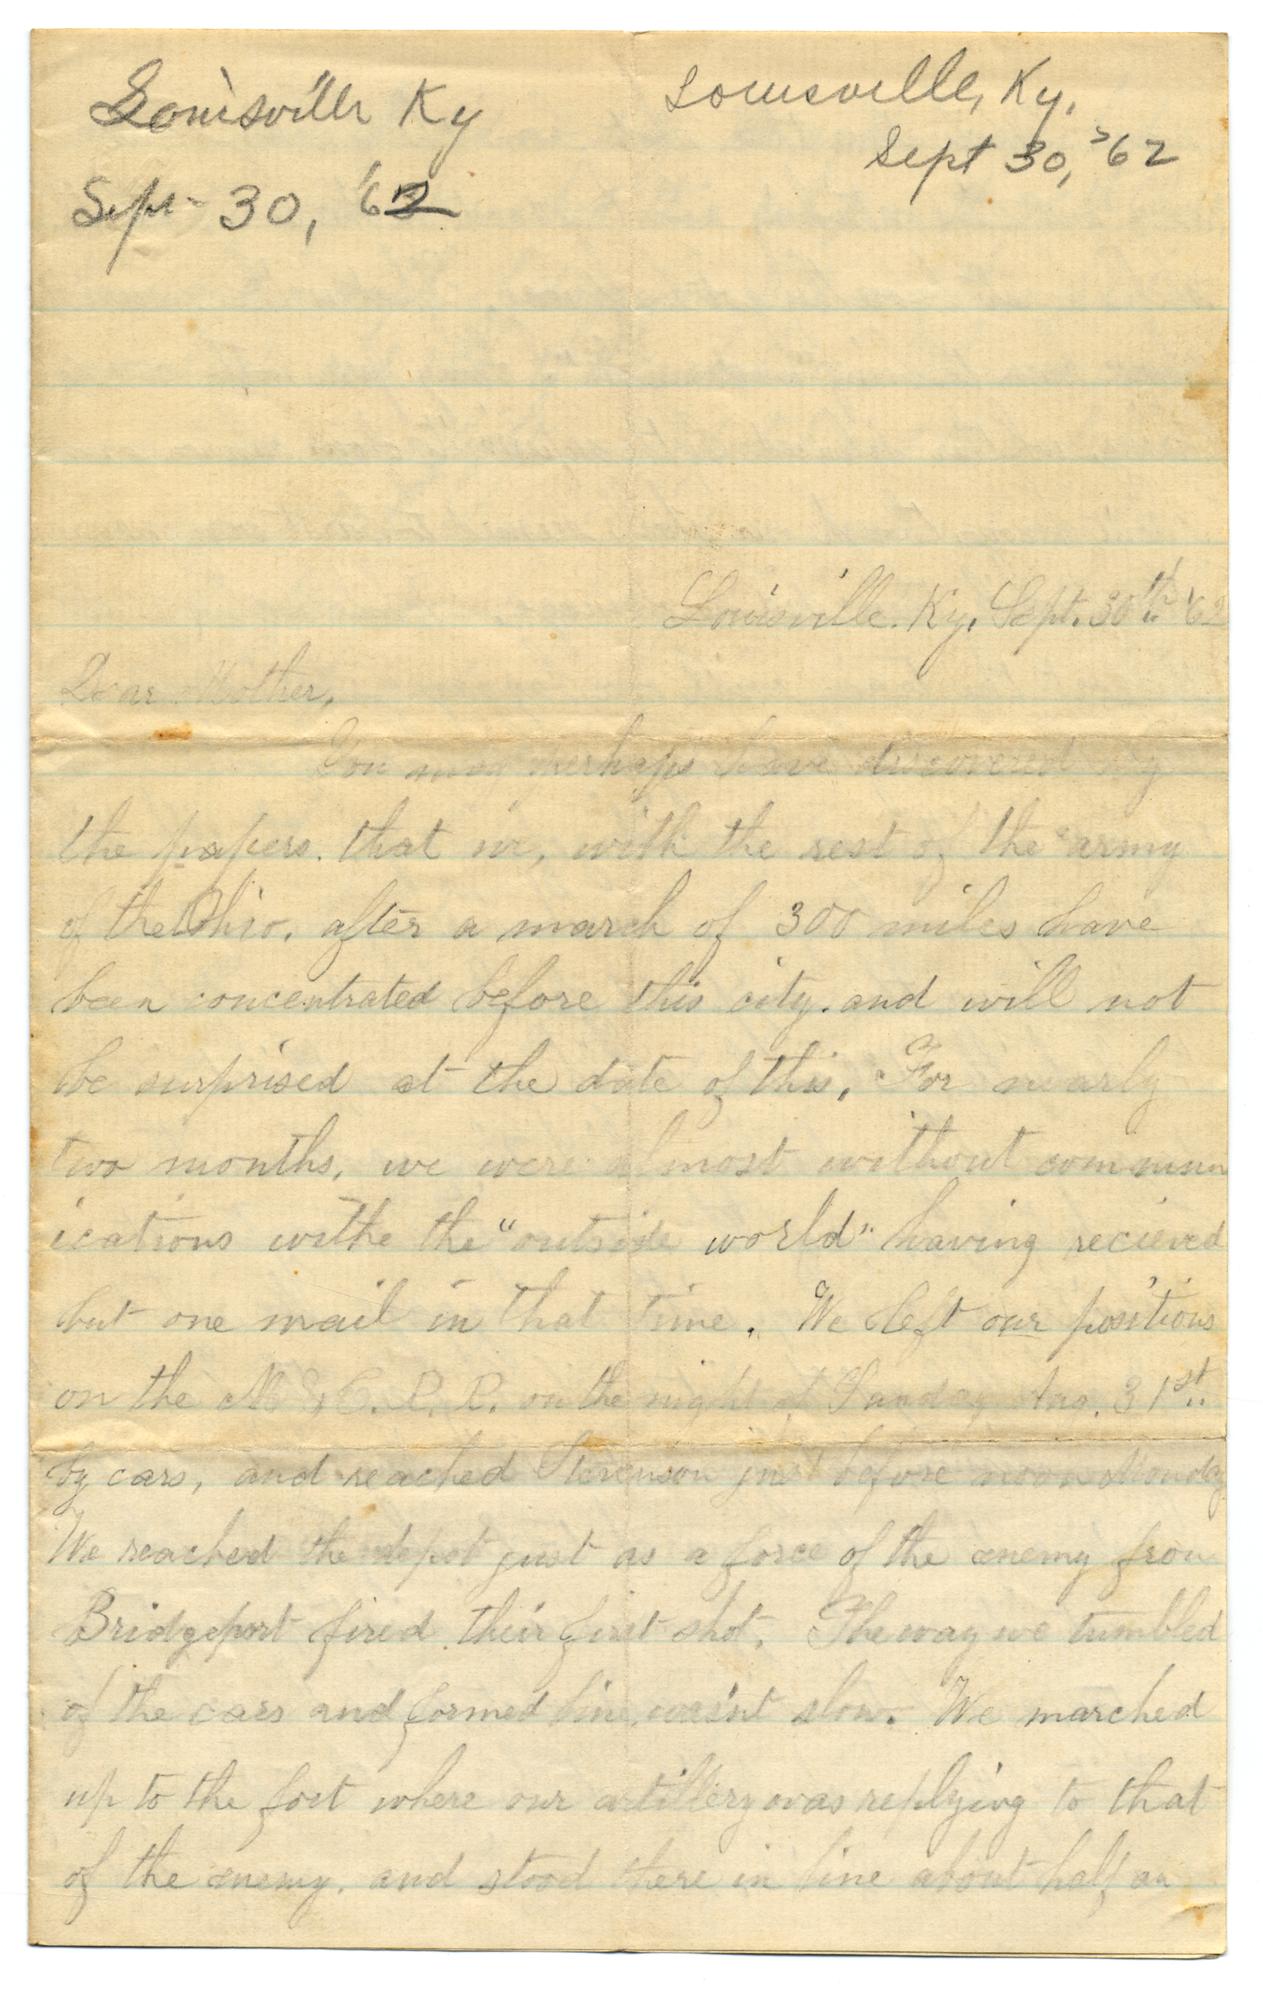 Louisville Ky
Sept- 30, '62
Louisville, Ky.
Sept 30, '62
Louisville. Ky. Sept. 30th '62
Dear Mother,
You may perhaps have discovered by
the papers. that we, with the rest of the army
of the Ohio. after a march of 300 miles have
been concentrated before this city. and will not
be surprised at the date of this. For nearly
two months, we were almost without commun
ications withe the "outside world" having recieved
but one mail in that time. We left our positions
on the M & C. R. R. on the night of Sunday Aug. 31st.
by cars, and reached Stevenson just before noon Monday
We reached the depot just as a force of the enemy from
Bridgeport fired their first shot. The way we tumbled
of the cars and formed line, wasn't slow. We marched
up to the fort where our artillery was replying to that
of the enemy. and stood there in line about half an